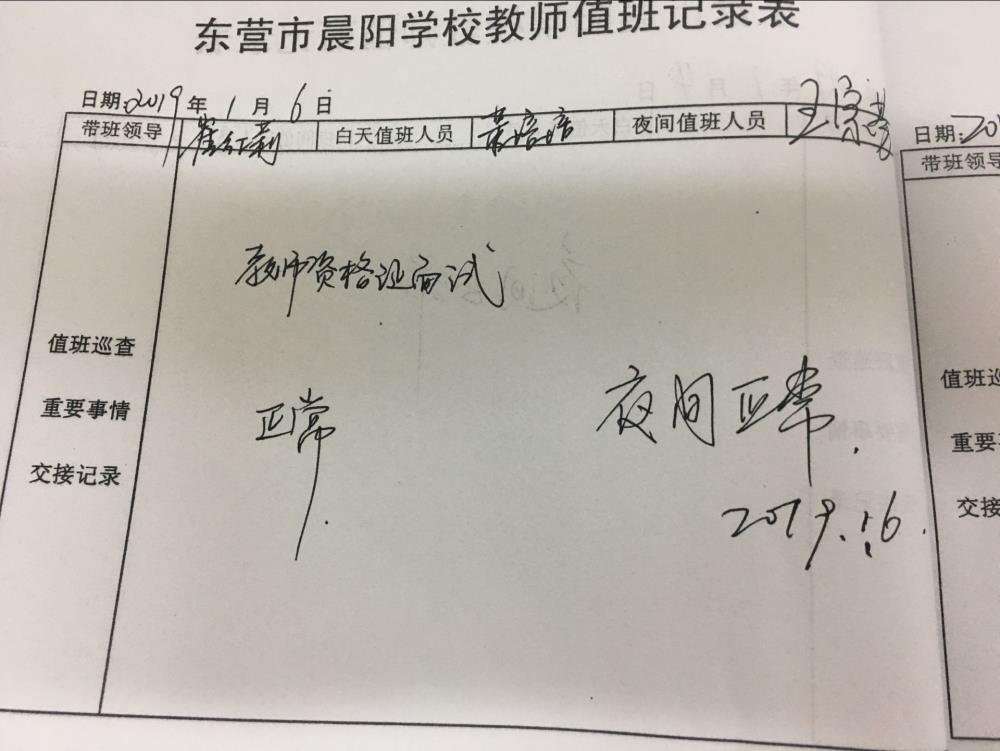 东营市晨阳学校教师值班记录表
日期:2019年1月6日
带班领导 崔红莉 白天值班人员 黄培培 夜间值班人员
教师资格证面试
值班巡查
重要事情
交接记录
正常.
夜间正常.
2019.1.6.
日期:201
带班领导
值班巡
重要
交接